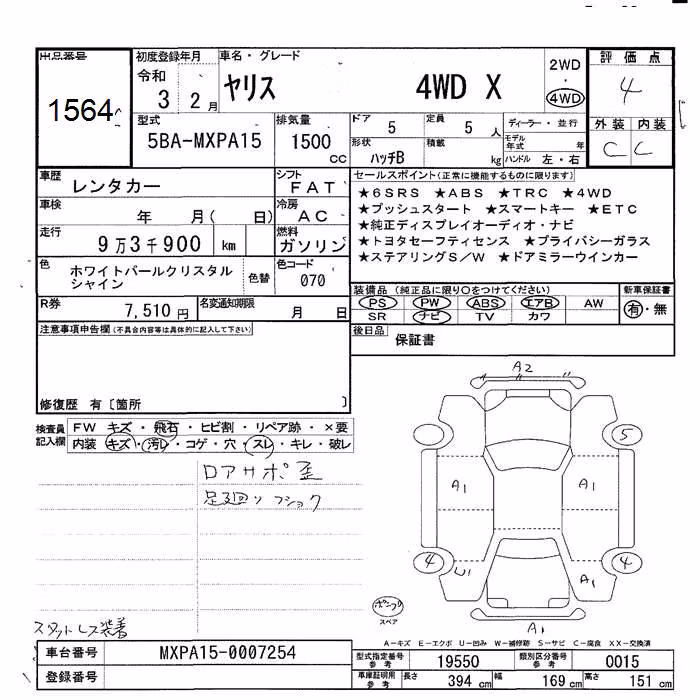 出品番号
1564
初度登録年月
令和
3 2月
車名・グレード
ヤリス 4WD X
2WD
・
4WD
評価点
4
外装 内装
C C
型式
5BA-MXPA15
排気量
1500
cc
ドア
5
定員
5 人
ディーラー・並行
形状
ハッチB
積載
kg
モデル年式 年
ハンドル 左・右
車歴
レンタカー
シフト
FAT
車検
年 月( 日)
冷房
AC
走行
9万3千900 km
燃料
ガソリン
色
ホワイトパールクリスタル
シャイン
色替
色コード
070
R券
7,510円
名変通知期限
月 日
セールスポイント(正常に機能するものに限ります)
★6SRS ★ABS ★TRC ★4WD
★プッシュスタート ★スマートキー ★ETC
★純正ディスプレイオーディオ・ナビ
★トヨタセーフティセンス ★プライバシーガラス
★ステアリングS/W ★ドアミラーウインカー
装備品(純正品に限り○をつけてください)
新車保証書
PS PW ABS エアB AW
SR ナビ TV カワ
有・無
後日品
保証書
注意事項申告欄(不具合内容等は具体的に記入して下さい)
修復歴 有〔箇所 〕
検査員
記入欄
FW キズ・飛石・ヒビ割・リペア跡・×要
内装 キズ・汚レ・コゲ・穴・スレ・キレ・破レ
ロアサポ歪
足廻りフショク
スタットレス装着
A2
5
A1
A1
4
4
U1
A1
スペア
A1
A-キズ E-エクボ U-凹み W-補修跡 S-サビ C-腐食 XX-交換済
車台番号
MXPA15-0007254
登録番号
型式指定番号
参考
19550
類別区分番号
参考
0015
車庫証明用
参考
長さ 394 cm
幅 169 cm
高さ 151 cm